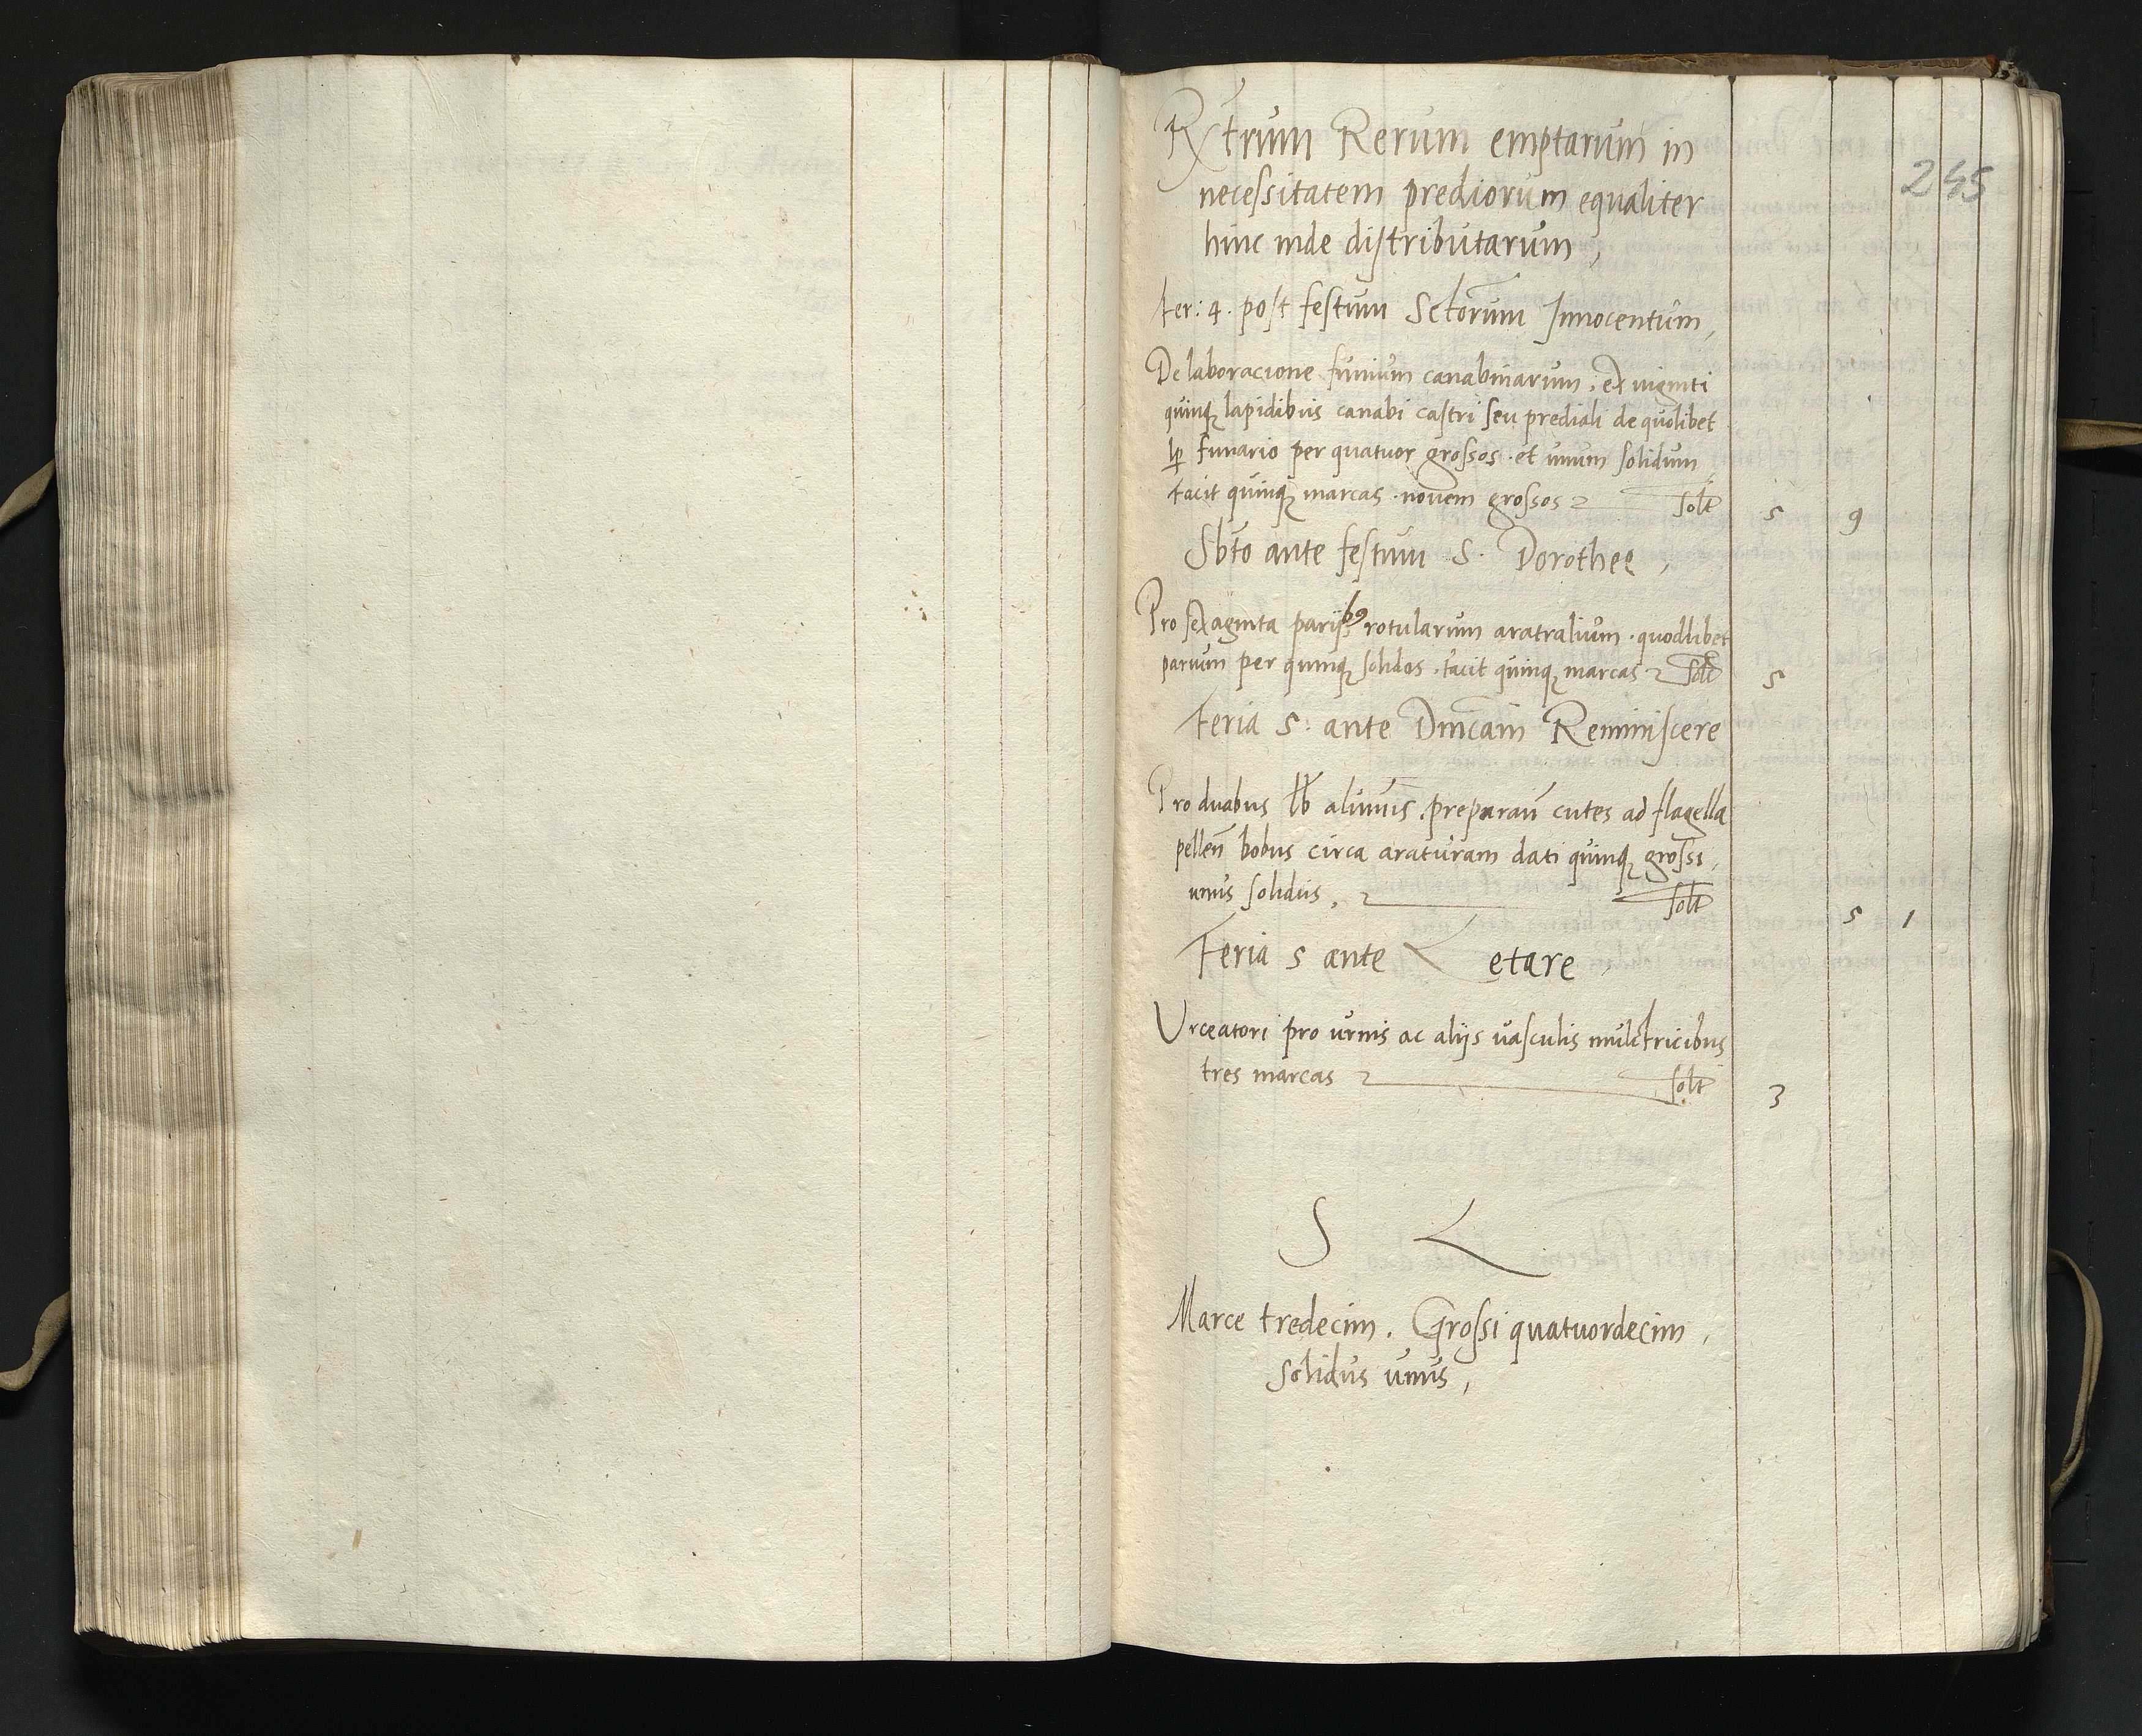 Rxtrum Rerum emptarum in
245
necessitatem prediorum equaliter
hinc inde distributarum,
Fer: 4. post festum Sctorum Innocentum,
De laboracione funium canabinarum, ex viginti
quinq lapidibus canabi castri seu prediali de quolibet
lp funario per quatuor grossos. et unum solidum
facit quinq marcas. novem grossos solt 5 9
Sbto ante festum S. Dorothee,
Pro sexaginta parijsb9 rotularum aratralium. quodlibet
parium per quinq solidos. facit quinq marcas solt 5
Feria 5. ante Dnicam Reminiscere
Pro duabus lb aluminis. preparan cutes ad flagella
pellen bobus circa araturam dati quinq grossi,
unus solidus, solt 5 1
Feria 5 ante Letare,
Urceatori pro urnis ac alijs vasculis mulctricibus
tres marcas solt 3
S L
Marce tredecim. Grossi quatuordecim,
Solidus unus,